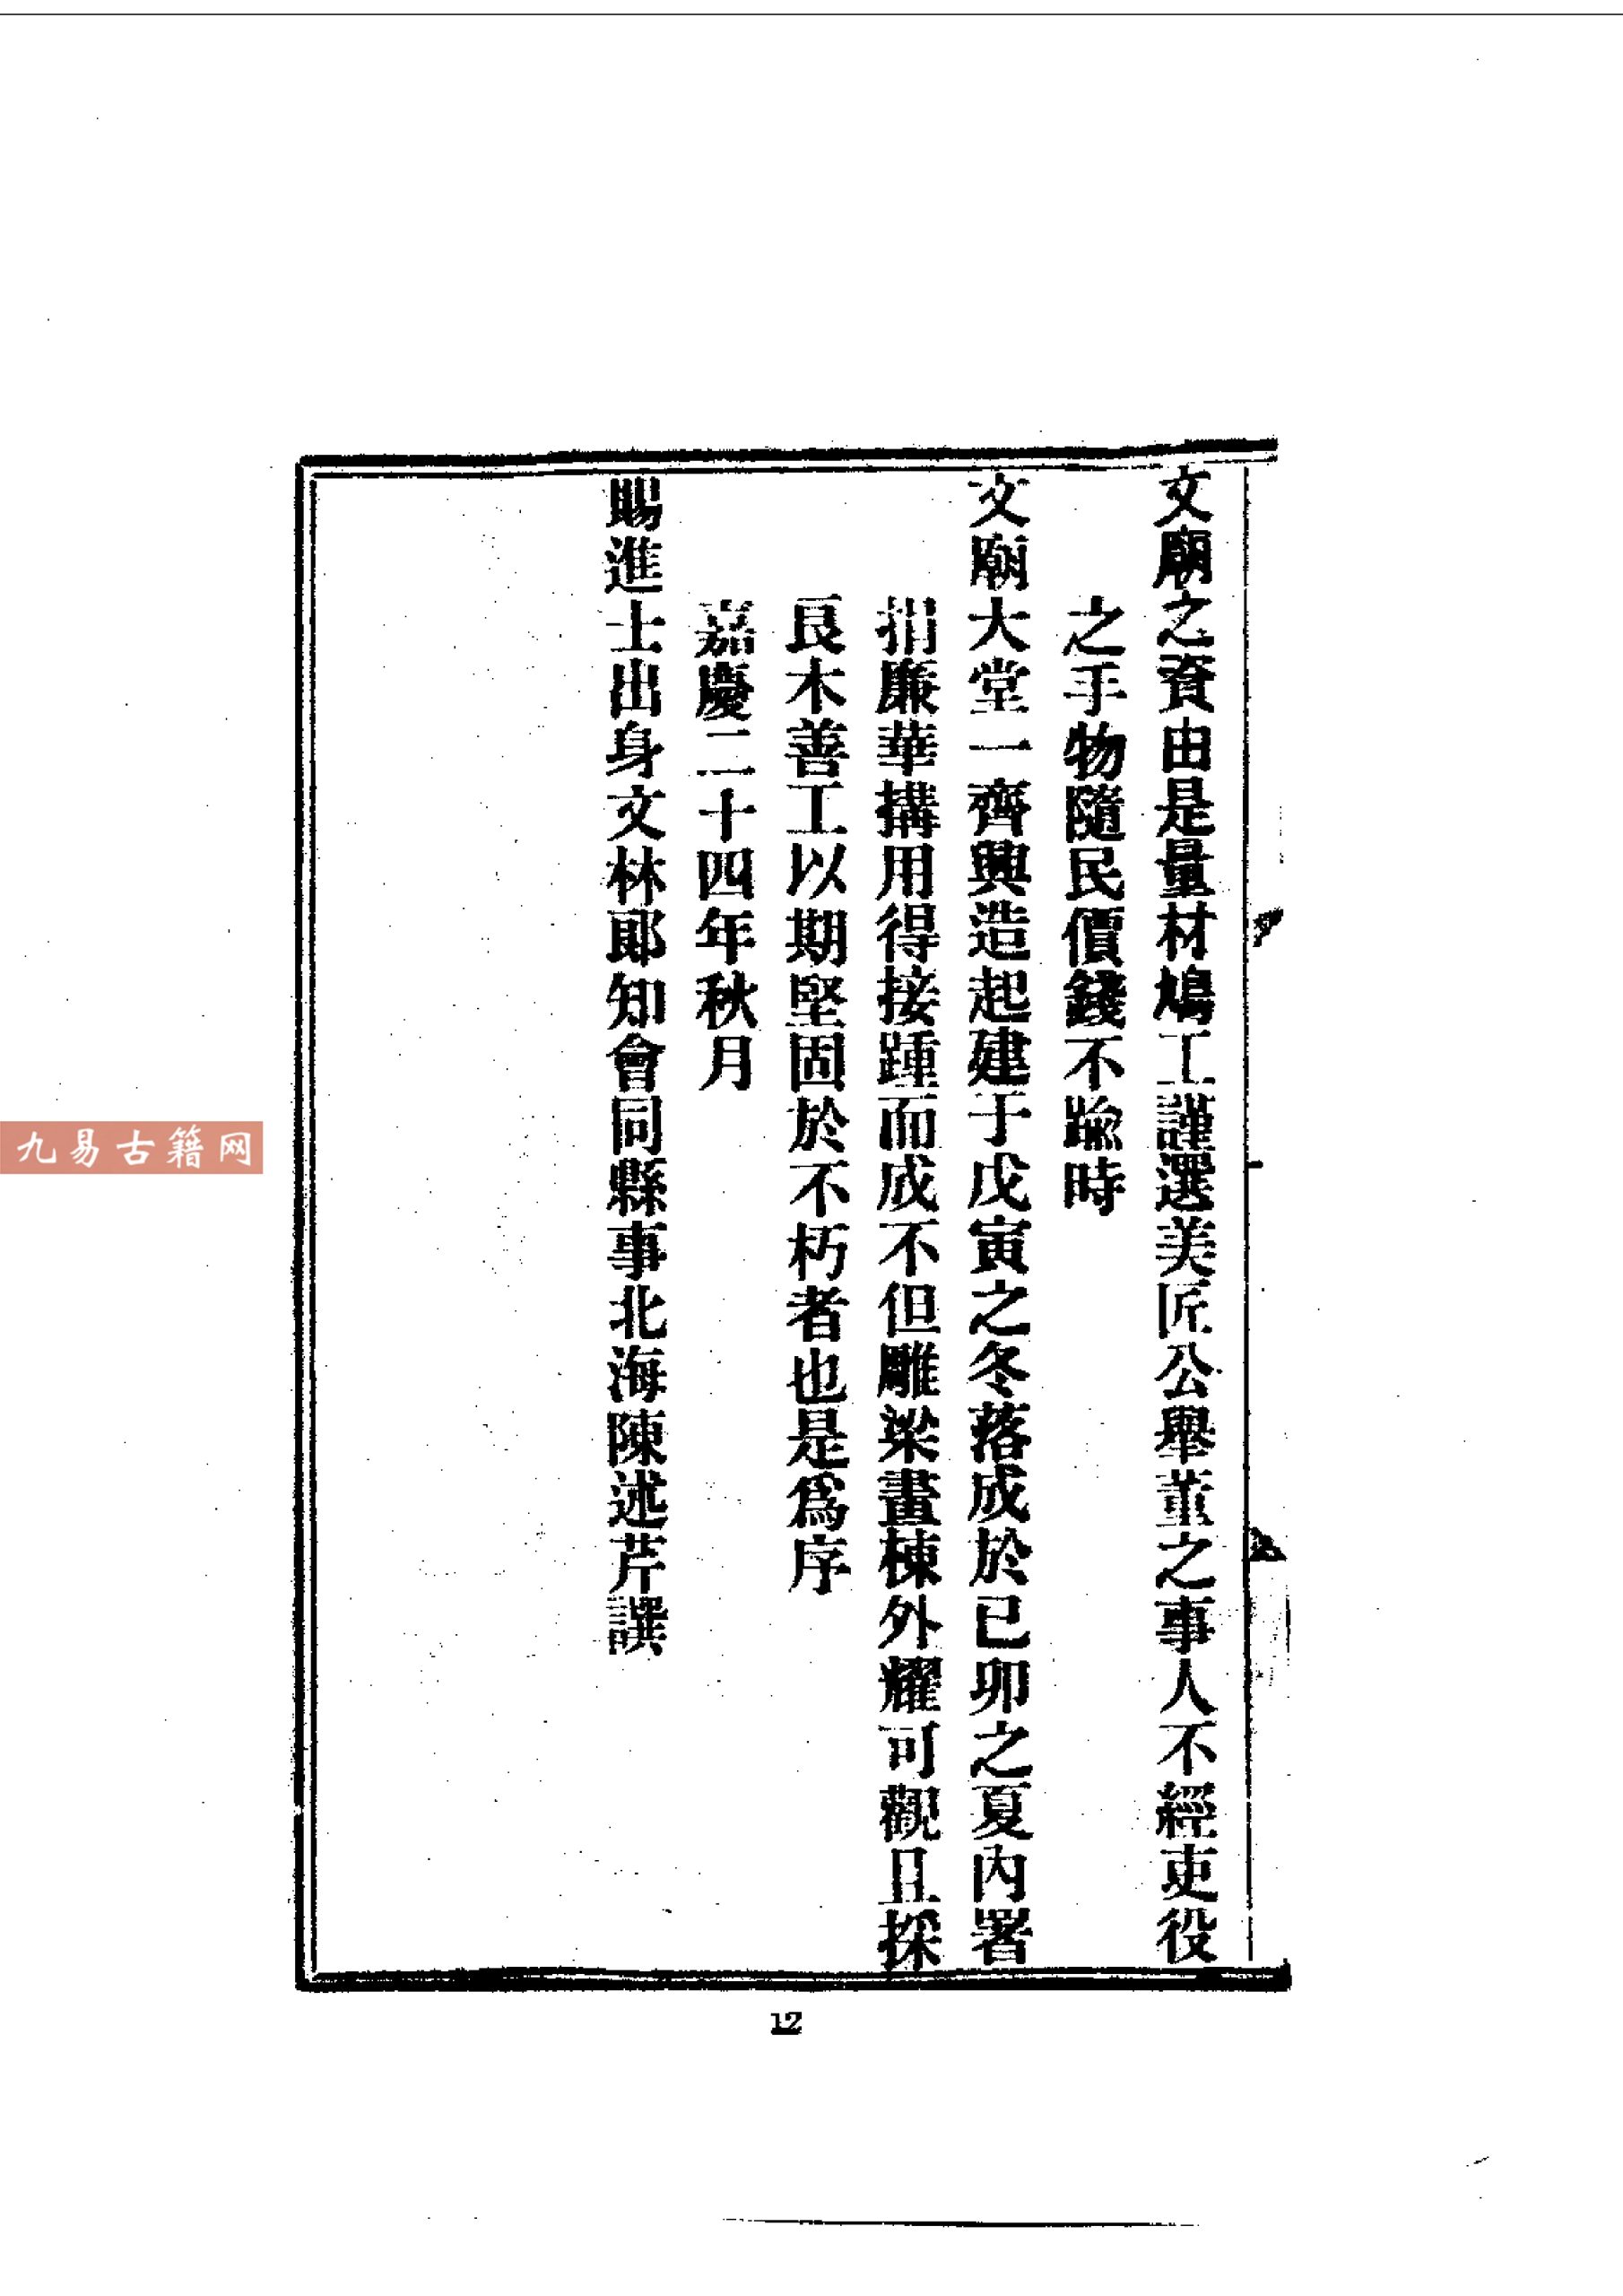 文廟之資由是量材鳩工謹選美匠公舉董之事人不經吏役
之手物隨民價錢不踰時
文廟大堂一齊興造起建于戊寅之冬落成於已卯之夏內署
捐廉華搆用得接踵而成不但雕梁畫棟外耀可觀且採
良木善工以期堅固於不朽者也是爲序
嘉慶二十四年秋月
賜進士出身文林郎知會同縣事北海陳述芹譔
九易古籍网
12